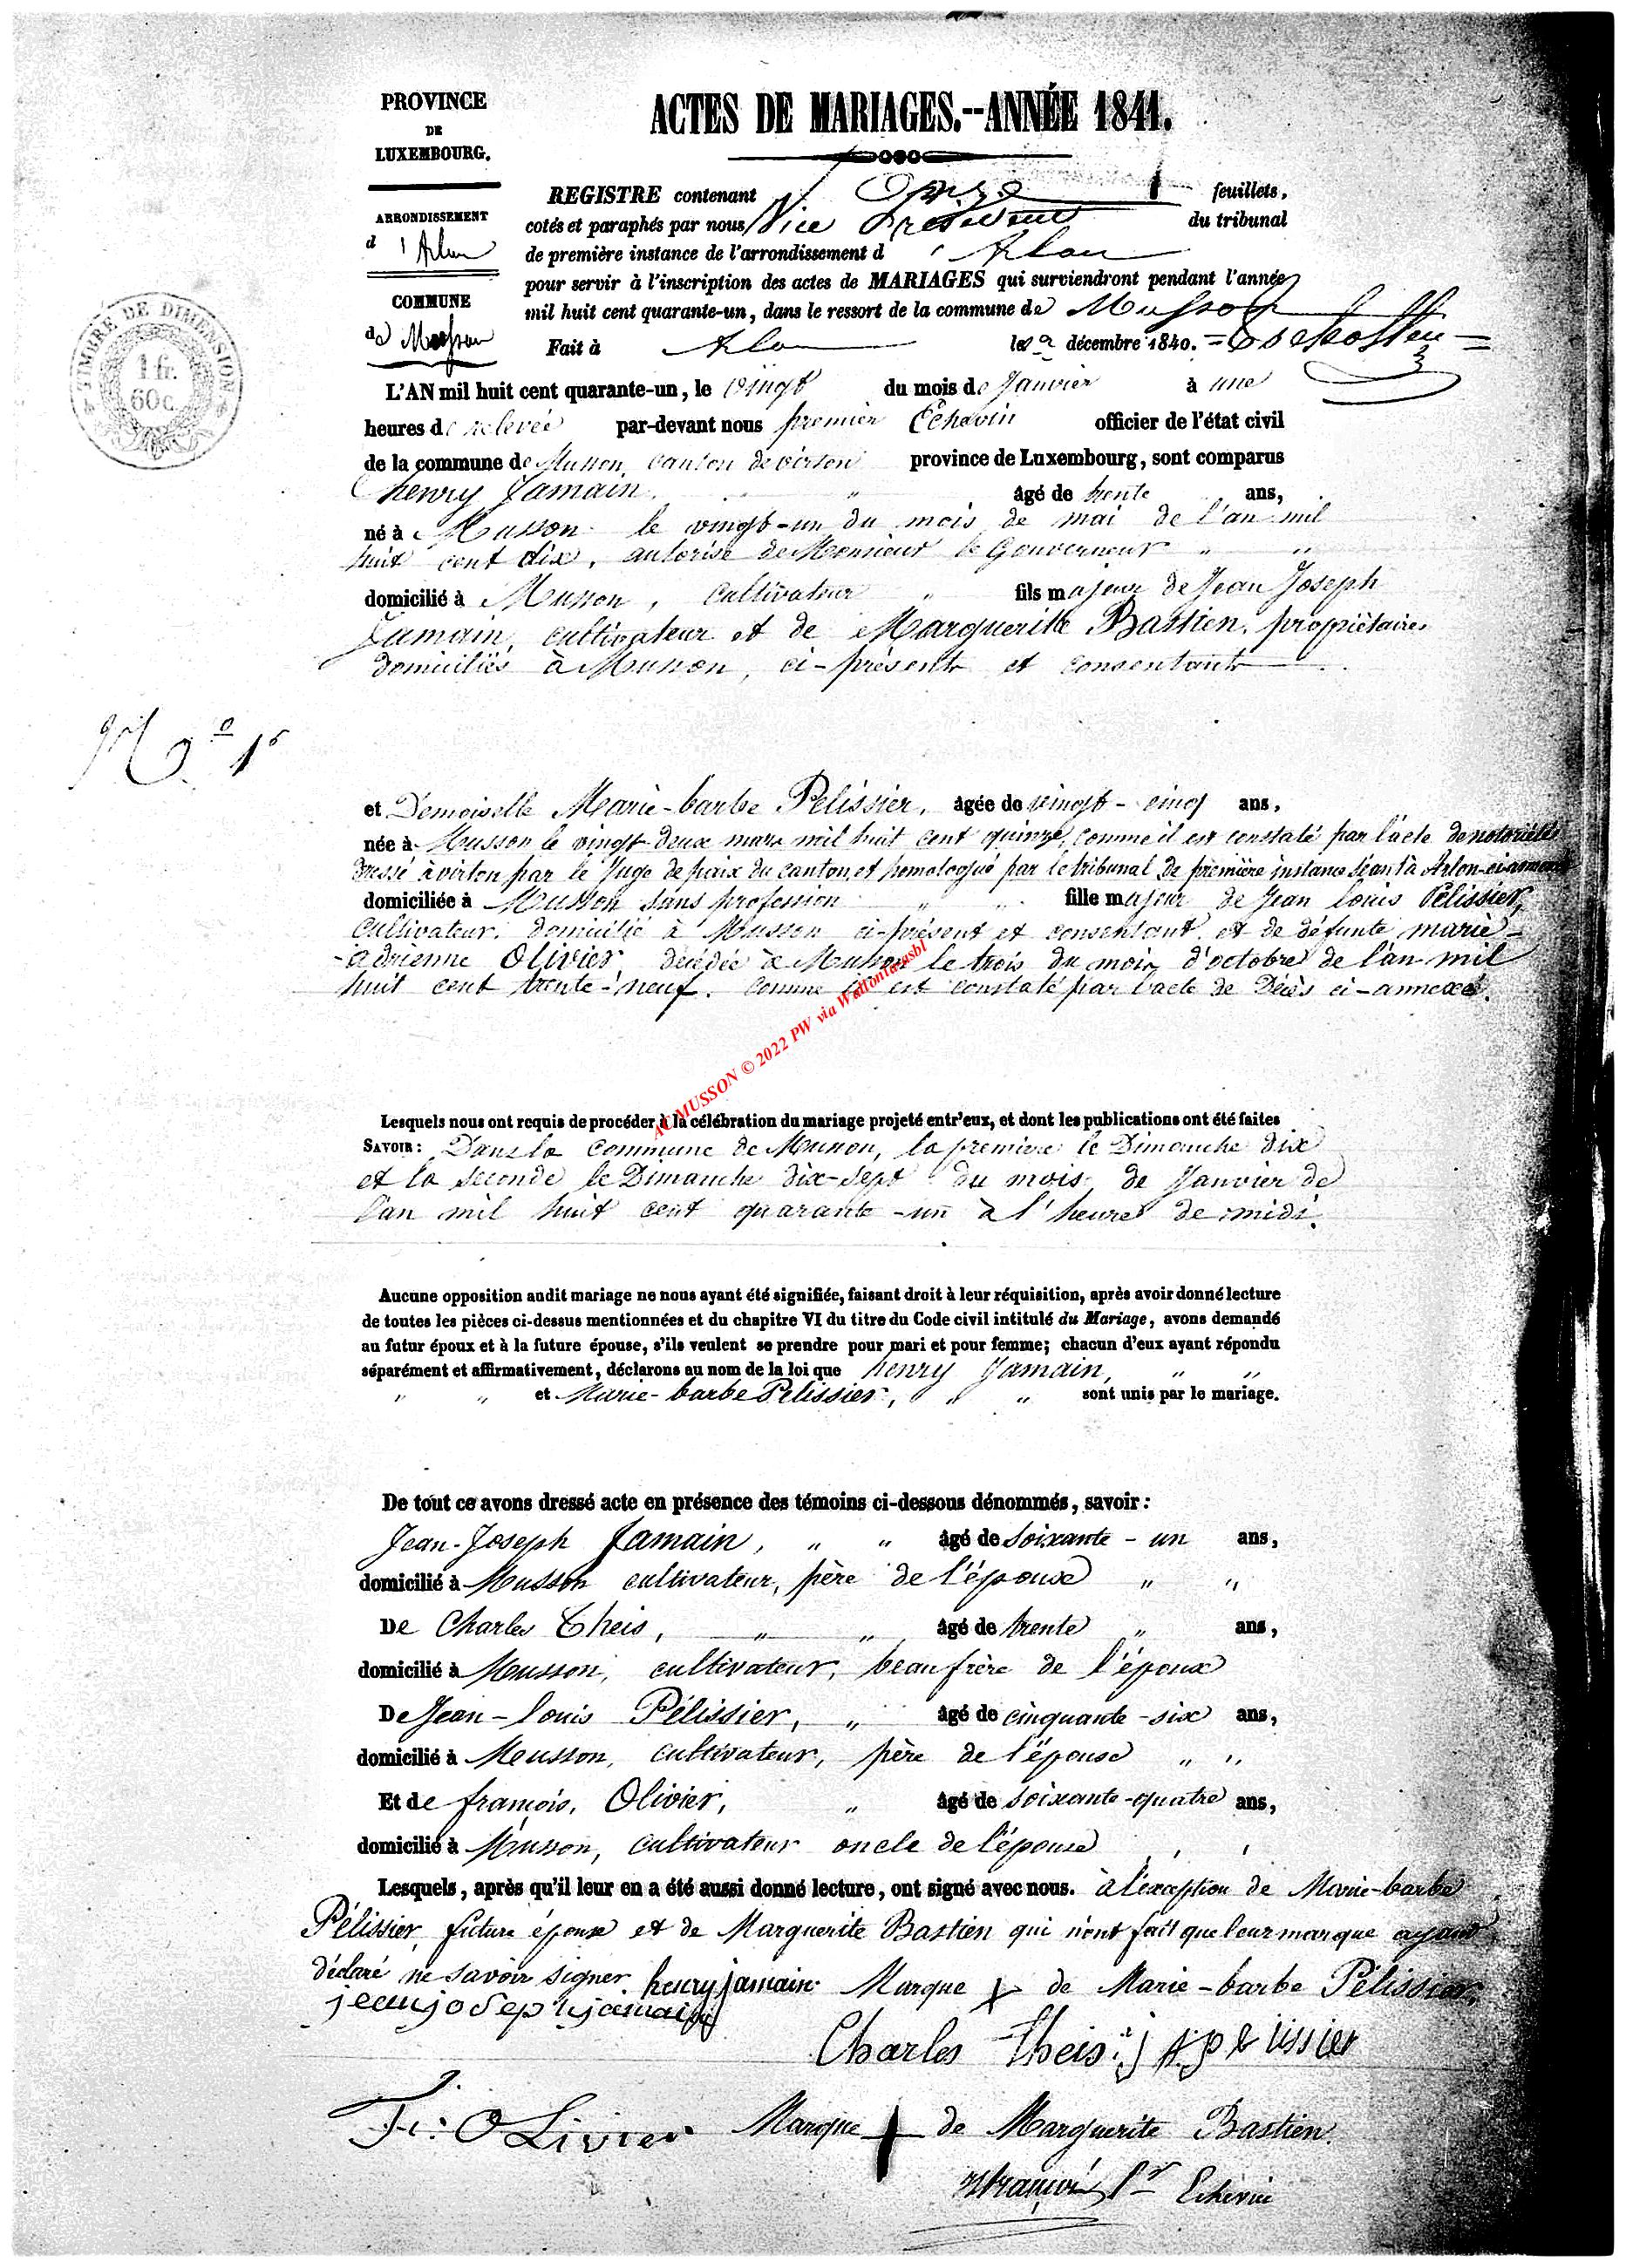 PROVINCE
DE
LUXEMBOURG.
ARRONDISSEMENT
d'Arlon
COMMUNE
de Musson
TIMBRE DE DIMENSION
1 fr.
60 c.
ACTES DE MARIAGES.--ANNÉE 1841.
REGISTRE contenant onze feuillets,
cotés et paraphés par nous Vice Président du tribunal
de première instance de l'arrondissement d'Arlon
pour servir à l'inscription des actes de MARIAGES qui surviendront pendant l'année
mil huit cent quarante-un, dans le ressort de la commune de Musson
Fait à Arlon le décembre 1840.
L'AN mil huit cent quarante-un, le vingt du mois de Janvier à une
heures de relevée par-devant nous premier Echevin officier de l'état civil
de la commune de Musson, canton de virton province de Luxembourg, sont comparus
henry Jamain. " âgé de trente ans,
né à Musson le vingt-un du mois de mai de l'an mil
huit cent dix, autorisé de Monsieur le Gouverneur " "
domicilié à Musson, Cultivateur " fils majeur de Jean Joseph
Jamain, cultivateur et de Marguerite Bastien, propriétaires
domiciliés à Musson, ci-présents et consentants
N.º 1r
et Demoiselle Marie-barbe Pelissier, âgée de vingt-cinq ans,
née à Musson le vingt-deux mars mil huit cent quinze, comme il est constaté par l'acte de notoriété
dressé à virton par le Juge de paix du canton et homologué par le tribunal de première instance séant à Arlon ci-annexé
domiciliée à Musson sans profession " " fille majeur de Jean Louis Pélissier,
Cultivateur, domicilié à Musson ci-présent et consentant, et de défunte marie-
-adrienne Olivier décédée à Musson le trois du mois d'octobre de l'an mil
huit cent trente-neuf. comme il est constaté par l'acte de Décès ci-annexé.
AC MUSSON © 2022 PW via Wallonia asbl
Lesquels nous ont requis de procéder à la célébration du mariage projeté entr'eux, et dont les publications ont été faites
SAVOIR: Dans la Commune de Musson, la première le Dimanche dix
et la seconde le Dimanche dix-sept du mois de Janvier de
l'an mil huit cent quarante-un à l'heure de midi.
Aucune opposition audit mariage ne nous ayant été signifiée, faisant droit à leur réquisition, après avoir donné lecture
de toutes les pièces ci-dessus mentionnées et du chapitre VI du titre du Code civil intitulé du Mariage, avons demandé
au futur époux et à la future épouse, s'ils veulent se prendre pour mari et pour femme; chacun d'eux ayant répondu
séparément et affirmativement, déclarons au nom de la loi que henry Jamain, " "
" " et Marie-barbe Pelissier, " " sont unis par le mariage.
De tout ce avons dressé acte en présence des témoins ci-dessous dénommés, savoir:
Jean-Joseph Jamain, " " âgé de soixante-un ans,
domicilié à Musson cultivateur, père de l'époux " "
De Charles Theis, " " âgé de trente " ans,
domicilié à Musson, cultivateur, beau frère de l'époux
De Jean-Louis Pélissier, " âgé de cinquante-six ans,
domicilié à Musson, cultivateur, père de l'épouse " "
Et de françois, Olivier, " âgé de soixante-quatre ans,
domicilié à Musson, cultivateur oncle de l'épouse
Lesquels, après qu'il leur en a été aussi donné lecture, ont signé avec nous. à l'exception de Marie-barbe
Pélissier, future épouse et de Marguerite Bastien qui n'ont fait que leur marque ayant
déclaré ne savoir signer henry jamain Marque + de Marie-barbe Pélissier,
jean joseph jamain
Charles Theis j pelissier
F: OLivier Marque + de Marguerite Bastien.
1r Echevin